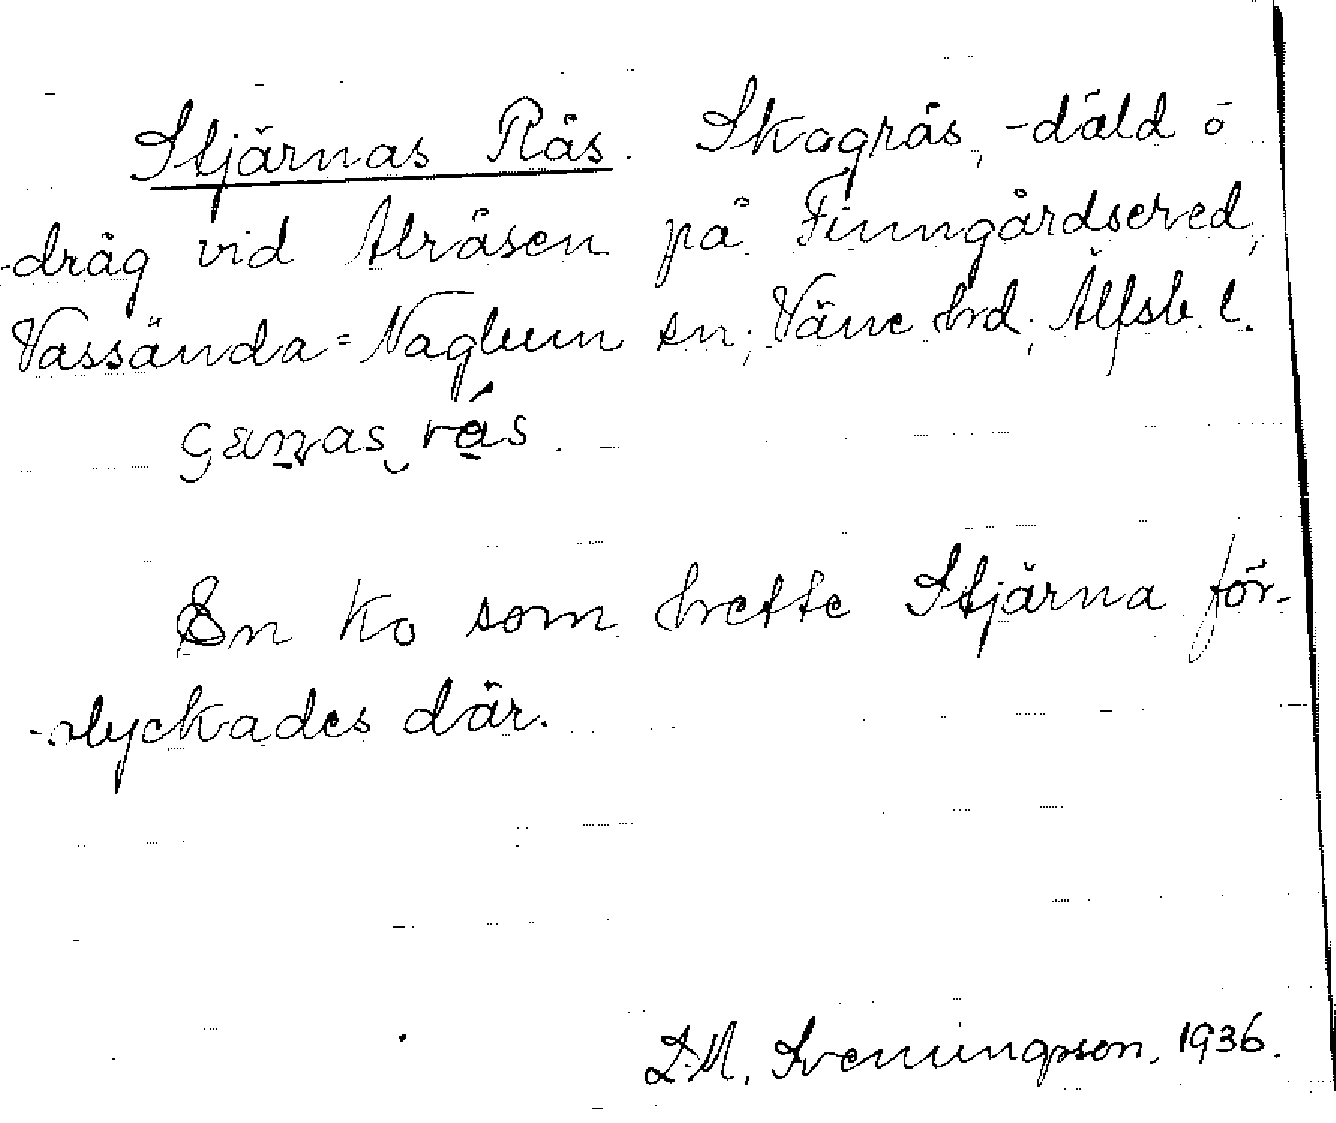 Stjärnas Rås. Skogrås, -däld o
-dråg vid Alråsen på Finngårdsered,
Vassända-Naglum sn; Väne hrd; Älfsb. l.
En ko som hette Stjärna för-
-olyckades där.
D.A. Sveningsson, 1936.